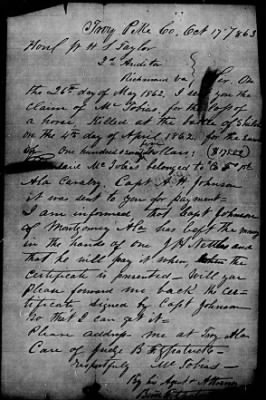 Troy Pike Co. Oct 17th 1863
Honl W H S Taylor
2d Auditor
Richmond Va
Sir. On
the 26th day of May 1862. I sent you the
claim of Mc Tobias, for the loss of
a horse, Killed at the battle of Shiloh
on the 4th day of April 1862. for the sum
of One hundred
Said Mc Tobias belonged to
Ala Cavalry. Capt A. H Johnson
it was sent to you for payment—
I am informed, that Capt Johnson
of Montgomery Ala has left the money
in the hands of one J H
that he will pay it when, the
certificate is presented— Will you
Please forward me back the Cer-
tificate signed by Capt Johnson
So that I can get it—
Please address me at Troy Ala
Care of Judge B F
respectfully Mc Tobias—
By his Agent & Attorney